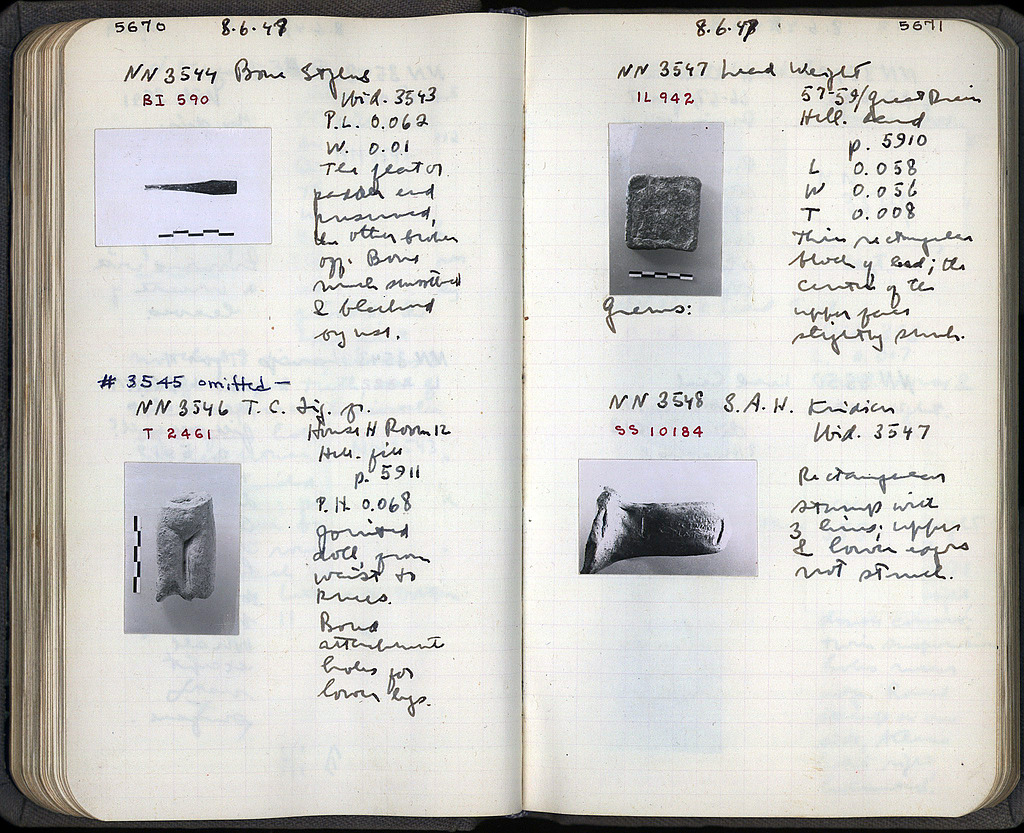 5670 8.6.47
NN 3544 Bone Stylus
BI 590
Wid. 3543
P.L. 0.062
W. 0.01
The flat or
padded end
preserved,
the other broken
off. Bone
much smoothed
& bleached
by use.
# 3545 omitted —
NN 3546 T.C. Fig. fr.
T 2461
House H Room 12
Hell. fill
p. 5911
P.H. 0.068
Jointed
doll, from
waist to
knees.
Bored
attachment
holes for
lower legs.
8.6.47 5671
NN 3547 Lead Weight
IL 942
57-59/Great Drain
Hell. sand
p. 5910
L 0.058
W 0.056
T 0.008
Thin rectangular
block of lead; the
centre of the
upper face
slightly sunk.
Grams:
NN 3548 S.A.H. Knidian
SS 10184
Wid. 3547
Rectangular
stamp with
3 lines; upper
& lower edges
not struck.